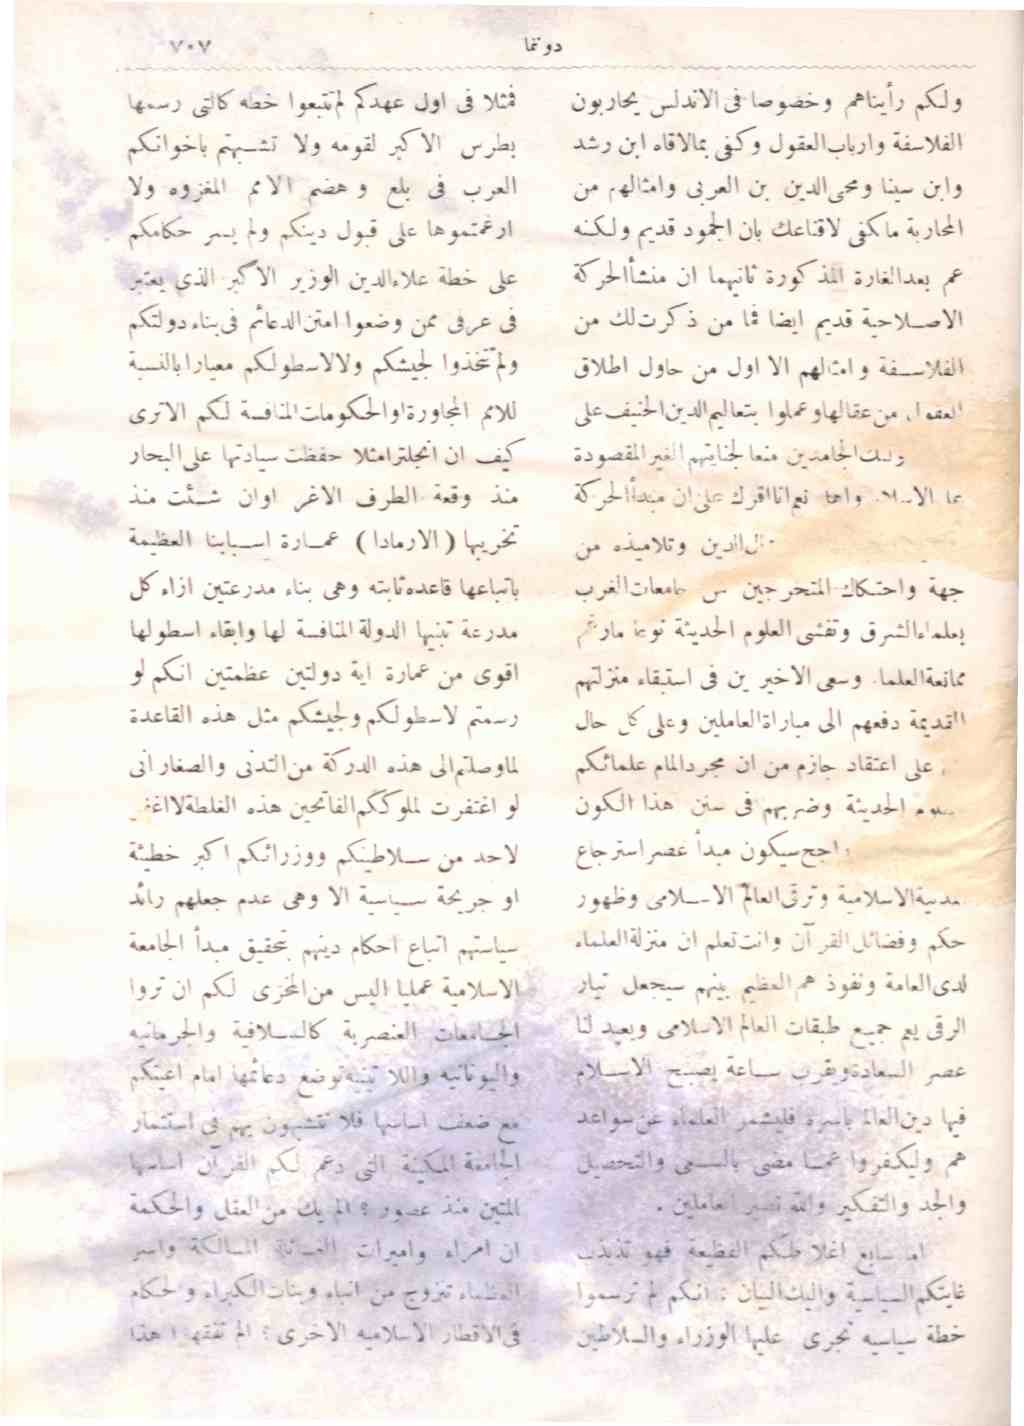 دونما
٧٠٧
ولكم رأيناهم وخصوصا فى الاندلس يحاربون
الفلاسفة وارباب العقول وكفى بمالاقاه ابن رشد
وابن سينا ومحى الدين بن العربى وامثالهم من
المحاربة ماكفى لاقناعك بان الجمود قديم ولكنه
عم بعد الغارة المذكورة ثانيهما ان منشأ الحركة
الاصلاحية قديم ايضا فما من ذكرت لك من
الفلاسفة وامثالهم الا اول من حاول اطلاق
العقول من عقالها وعملوا بتعاليم الدين الحنيف على
الجامدين منعا لجنايتهم الغير المقصودة
الاسلام واهله نعم انا اقرك على ان مبدأ الحركة
الدين وتلاميذه من
جهة واحتكاك المتخرجين من جامعات الغرب
بعلماء الشرق وتفشى العلوم الحديثة نوعا مارغم
ممانعة العلماء وسعى الاخيرين فى استبقاء منزلتهم
القديمة دفعهم الى مباراة العاملين وعلى كل حال
على اعتقاد جازم من ان مجرد المام علمائكم
الحديثة وضربهم فى سنن هذا الكون
سيكون مبدأ عصر استرجاع
الاسلامية وترقى العالم الاسلامى وظهور
حكم وفضائل القرآن وانت تعلم ان منزلة العلماء
لدى العامة ونفوذهم العظيم بينهم سيجعل تيار
الرقى يعم جميع طبقات العالم الاسلامى ويعيد لنا
عصر السعادة ويقرب ساعة يصبح الاسلام
فيها دين العالم باسره فليشمر العلماء عن سواعد
هم وليكفروا عما مضى بالسعى والتحصيل
والجد والتفكير والله نصير العاملين .
اما سابع اغلاطكم الفظيعة فهو تذبذب
غايتكم السياسية واليك البيان : انكم لم ترسموا
خطة سياسيه تجرى عليها الوزراء والسلاطين
فمثلا فى اول عهدكم لم تتبعوا خطه كالتى رسمها
بطرس الاكبر لقومه ولا تشبهتم باخوانكم
العرب فى بلع وهضم الامم المغزوه ولا
ارغمتموها على قبول دينكم ولم يسر حكامكم
على خطة علاء الدين الوزير الاكبر الذى يعتبر
فى عرفى ممن وضعوا امتن الدعائم فى بناء دولتكم
ولم تتخذوا لجيشكم ولا لاسطولكم معيارا بالنسبة
للامم المجاورة او الحكومات المنافسة لكم الا ترى
كيف ان انجلترا مثلا حفظت سيادتها على البحار
منذ وقعة الطرف الاغر اوان شئت منذ
تخريبها (الارمادا) عمارة اسبانيا العظيمة
باتباعها قاعده ثابته وهى بناء مدرعتين ازاء كل
مدرعة تبنيها الدولة المنافسة لها وابقاء اسطولها
اقوى من عمارة اية دولتين عظمتين انكم لو
رسمتم لاسطولكم ولجيشكم مثل هذه القاعدة
لما وصلتم الى هذه الدركة من التدنى والصغار انى
لو اغتفرت لملوككم الفاتحين هذه الغلطة لا اغفر
لاحد من سلاطينكم ووزرائكم اكبر خطيئة
او جريحة سياسية الا وهى عدم جعلهم رائد
سياستهم اتباع احكام دينهم بتحقيق مبدأ الجامعة
الاسلامية عمليا اليس من المخزى لكم ان تروا
الجامعات العنصرية كالسلافية والجرمانيه
واليونانيه واللاتينيه توضع دعائمها امام اعينكم
مع ضعف اساسها فلا تتشبهون بهم فى استثمار
الجامعة المكينة التى دعم لكم القرآن اساسها
المتين منذ عصور ؟ الم يك من العقل والحكمة
ان امراء واميرات العائلة المالكة واسر
العظماء تتزوج من ابناء وبنات الكبراء والحكام
فى الاقطار الاسلاميه الاخرى ؟ الم تفقهوا هذا